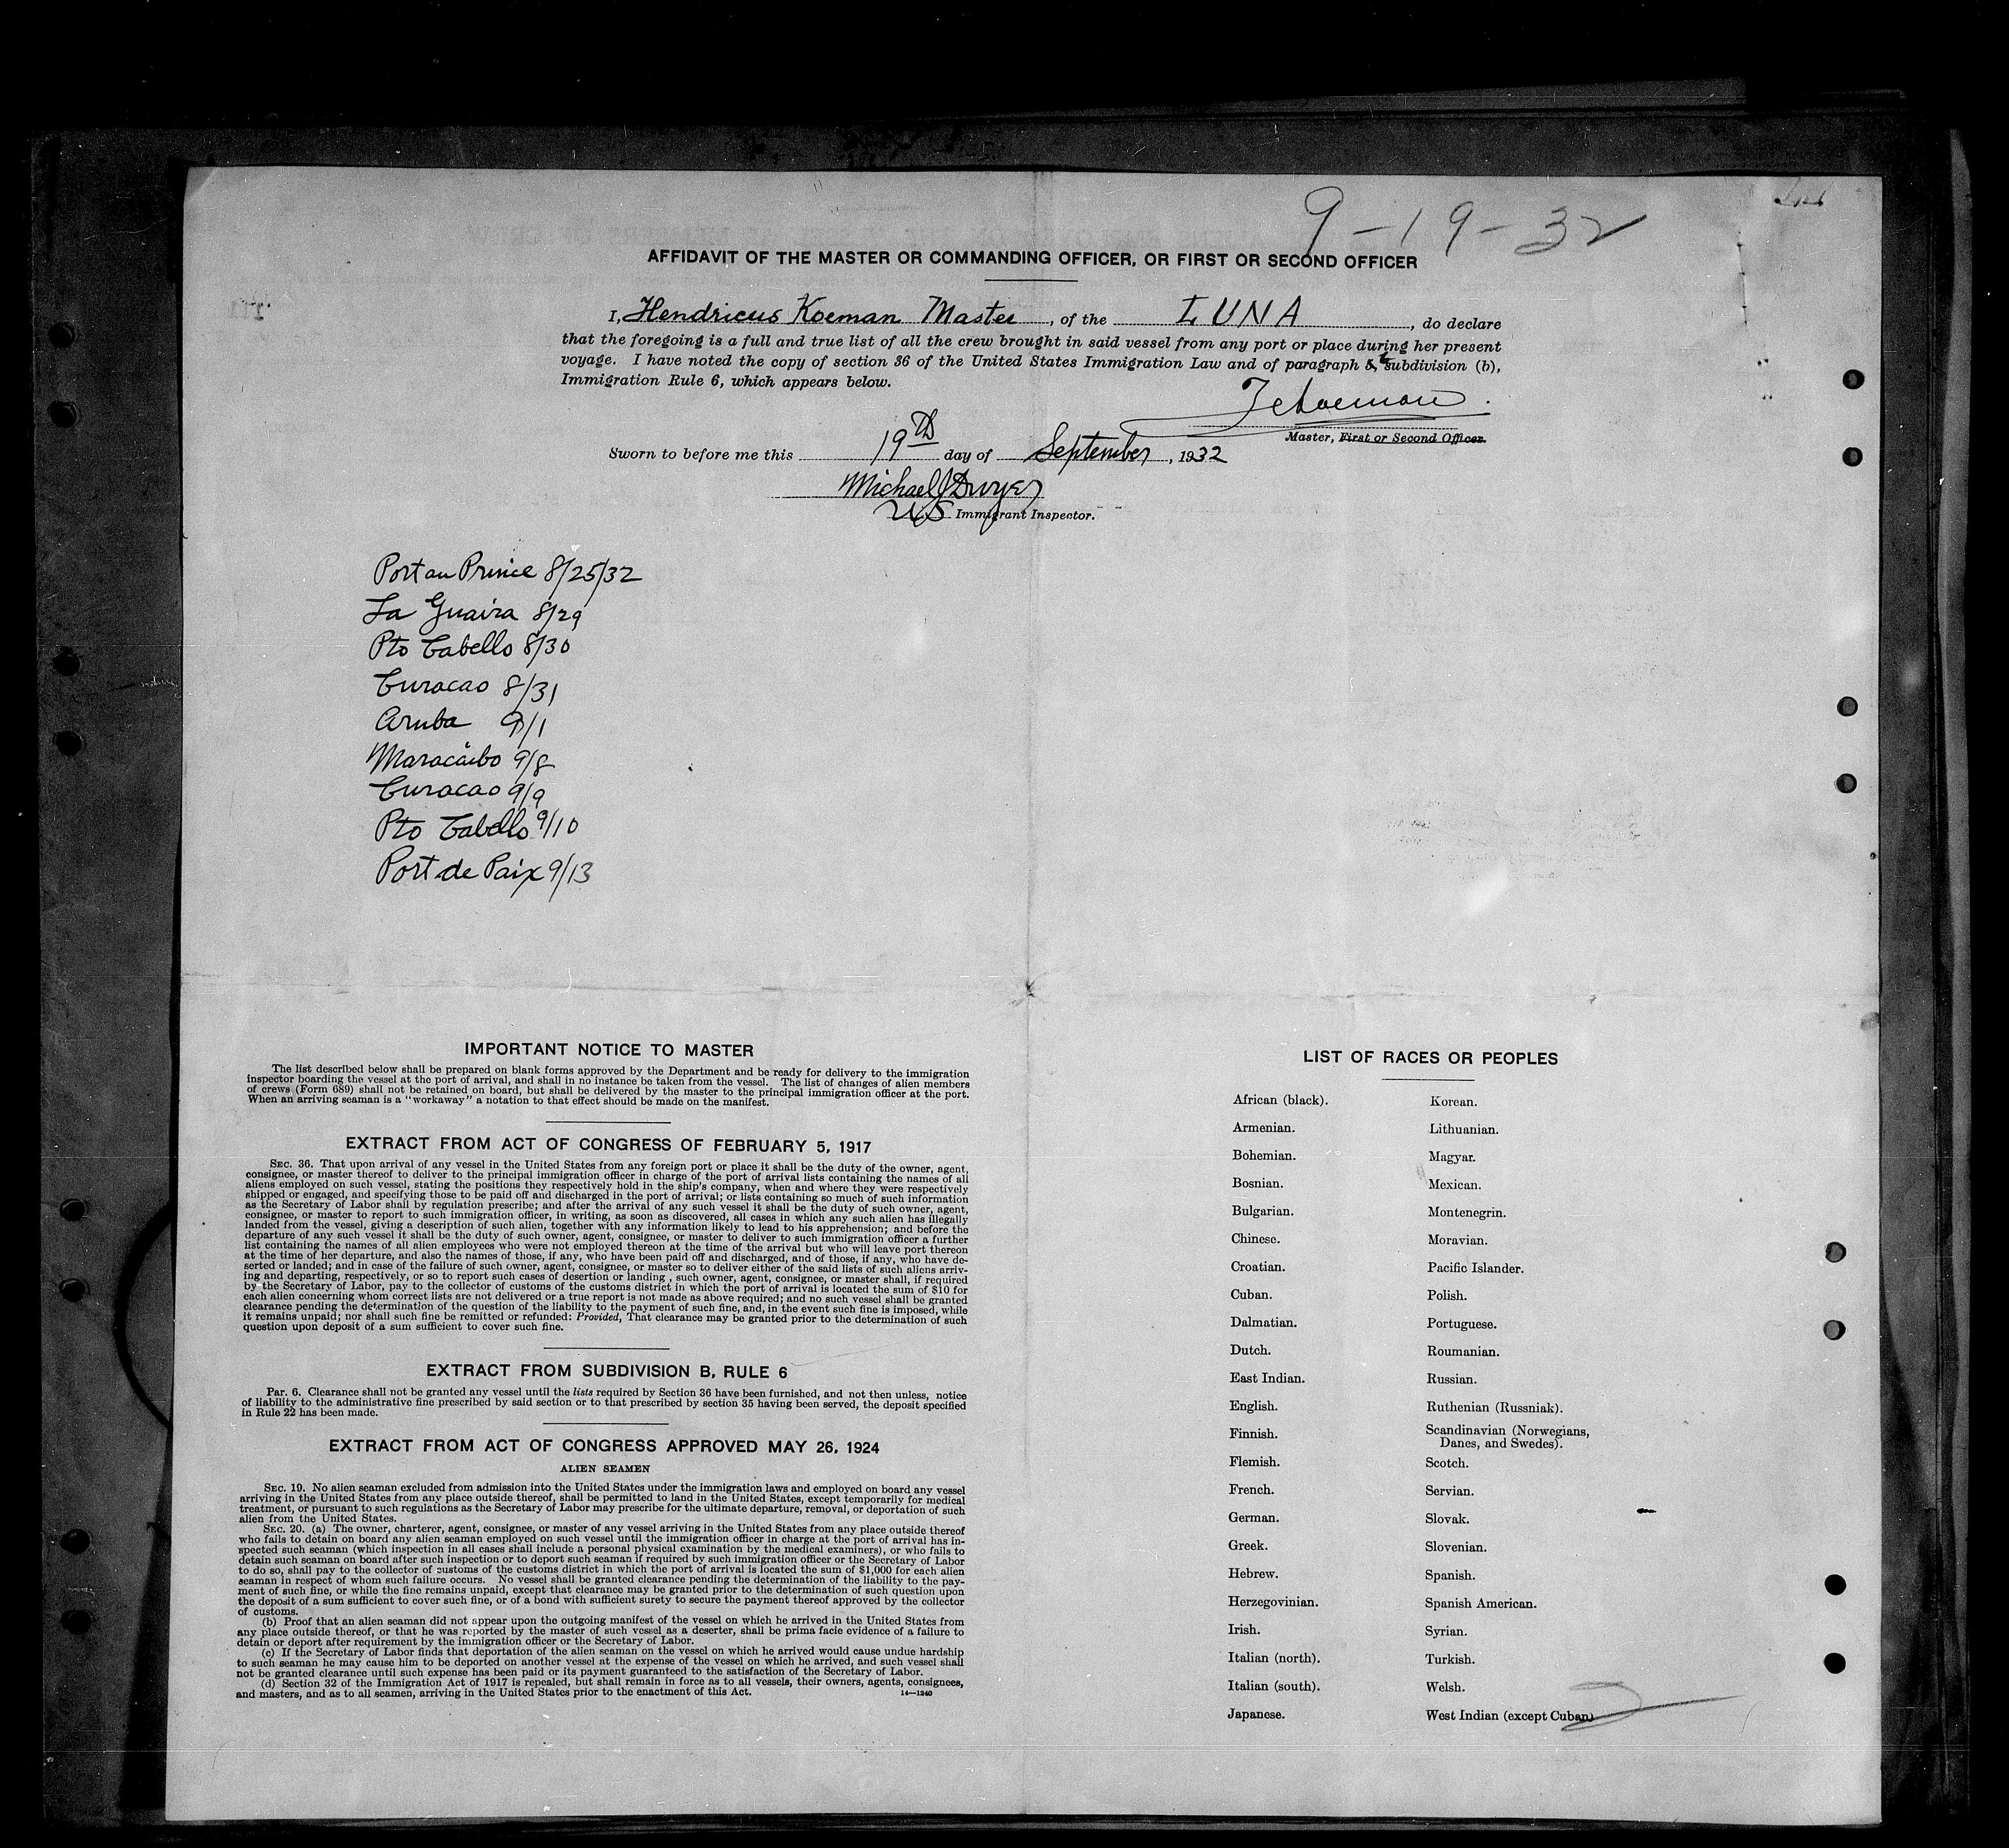 9-19-32
AFFIDAVIT OF THE MASTER OR COMMANDING OFFICER, OR FIRST OR SECOND OFFICER
I, Hendricus Koeman Master, of the LUNA, do declare
that the foregoing is a full and true list of all the crew brought in said vessel from any port or place during her present
voyage. I have noted the copy of section 36 of the United States Immigration Law and of paragraph 5, subdivision (b),
Immigration Rule 6, which appears below.
Koeman
Master, First or Second Officer.
Sworn to before me this 19th day of September, 1932
Michael J Dwyer
US Immigrant Inspector.
Port au Prince 8/25/32
La Guaira 8/29
Pto Cabello 8/30
Curacao 8/31
Aruba 9/1
Maracaibo 9/8
Curacao 9/9
Pto Cabello 9/10
Port de Paix 9/13
IMPORTANT NOTICE TO MASTER
The list described below shall be prepared on blank forms approved by the Department and be ready for delivery to the immigration
inspector boarding the vessel at the port of arrival, and shall in no instance be taken from the vessel. The list of changes of alien members
of crews (Form 689) shall not be retained on board, but shall be delivered by the master to the principal immigration officer at the port.
When an arriving seaman is a "workaway" a notation to that effect should be made on the manifest.
EXTRACT FROM ACT OF CONGRESS OF FEBRUARY 5, 1917
SEC. 36. That upon arrival of any vessel in the United States from any foreign port or place it shall be the duty of the owner, agent,
consignee, or master thereof to deliver to the principal immigration officer in charge of the port of arrival lists containing the names of all
aliens employed on such vessel, stating the positions they respectively hold in the ship's company, when and where they were respectively
shipped or engaged, and specifying those to be paid off and discharged in the port of arrival; or lists containing so much of such information
as the Secretary of Labor shall by regulation prescribe; and after the arrival of any such vessel it shall be the duty of such owner, agent,
consignee, or master to report to such immigration officer, in writing, as soon as discovered, all cases in which any such alien has illegally
landed from the vessel, giving a description of such alien, together with any information likely to lead to his apprehension; and before the
departure of any such vessel it shall be the duty of such owner, agent, consignee, or master to deliver to such immigration officer a further
list containing the names of all alien employees who were not employed thereon at the time of the arrival but who will leave port thereon
at the time of her departure, and also the names of those, if any, who have been paid off and discharged, and of those, if any, who have de-
serted or landed; and in case of the failure of such owner, agent, consignee, or master so to deliver either of the said lists of such aliens arriv-
ing and departing, respectively, or so to report such cases of desertion or landing , such owner, agent, consignee, or master shall, if required
by the Secretary of Labor, pay to the collector of customs of the customs district in which the port of arrival is located the sum of $10 for
each alien concerning whom correct lists are not delivered or a true report is not made as above required; and no such vessel shall be granted
clearance pending the determination of the question of the liability to the payment of such fine, and, in the event such fine is imposed, while
it remains unpaid; nor shall such fine be remitted or refunded: Provided, That clearance may be granted prior to the determination of such
question upon deposit of a sum sufficient to cover such fine.
EXTRACT FROM SUBDIVISION B, RULE 6
Par. 6. Clearance shall not be granted any vessel until the lists required by Section 36 have been furnished, and not then unless, notice
of liability to the administrative fine prescribed by said section or to that prescribed by section 35 having been served, the deposit specified
in Rule 22 has been made.
EXTRACT FROM ACT OF CONGRESS APPROVED MAY 26, 1924
ALIEN SEAMEN
SEC. 19. No alien seaman excluded from admission into the United States under the immigration laws and employed on board any vessel
arriving in the United States from any place outside thereof, shall be permitted to land in the United States, except temporarily for medical
treatment, or pursuant to such regulations as the Secretary of Labor may prescribe for the ultimate departure, removal, or deportation of such
alien from the United States.
SEC. 20. (a) The owner, charterer, agent, consignee, or master of any vessel arriving in the United States from any place outside thereof
who fails to detain on board any alien seaman employed on such vessel until the immigration officer in charge at the port of arrival has in-
spected such seaman (which inspection in all cases shall include a personal physical examination by the medical examiners), or who fails to
detain such seaman on board after such inspection or to deport such seaman if required by such immigration officer or the Secretary of Labor
to do so, shall pay to the collector of customs of the customs district in which the port of arrival is located the sum of $1,000 for each alien
seaman in respect of whom such failure occurs. No vessel shall be granted clearance pending the determination of the liability to the pay-
ment of such fine, or while the fine remains unpaid, except that clearance may be granted prior to the determination of such question upon
the deposit of a sum sufficient to cover such fine, or of a bond with sufficient surety to secure the payment thereof approved by the collector
of customs.
(b) Proof that an alien seaman did not appear upon the outgoing manifest of the vessel on which he arrived in the United States from
any place outside thereof, or that he was reported by the master of such vessel as a deserter, shall be prima facie evidence of a failure to
detain or deport after requirement by the immigration officer or the Secretary of Labor.
(c) If the Secretary of Labor finds that deportation of the alien seaman on the vessel on which he arrived would cause undue hardship
to such seaman he may cause him to be deported on another vessel at the expense of the vessel on which he arrived, and such vessel shall
not be granted clearance until such expense has been paid or its payment guaranteed to the satisfaction of the Secretary of Labor.
(d) Section 32 of the Immigration Act of 1917 is repealed, but shall remain in force as to all vessels, their owners, agents, consignees,
and masters, and as to all seamen, arriving in the United States prior to the enactment of this Act. 14—1240
LIST OF RACES OR PEOPLES
African (black).
Armenian.
Bohemian.
Bosnian.
Bulgarian.
Chinese.
Croatian.
Cuban.
Dalmatian.
Dutch.
East Indian.
English.
Finnish.
Flemish.
French.
German.
Greek.
Hebrew.
Herzegovinian.
Irish.
Italian (north).
Italian (south).
Japanese.
Korean.
Lithuanian.
Magyar.
Mexican.
Montenegrin.
Moravian.
Pacific Islander.
Polish.
Portuguese.
Roumanian.
Russian.
Ruthenian (Russniak).
Scandinavian (Norwegians,
Danes, and Swedes).
Scotch.
Servian.
Slovak.
Slovenian.
Spanish.
Spanish American.
Syrian.
Turkish.
Welsh.
West Indian (except Cuban)